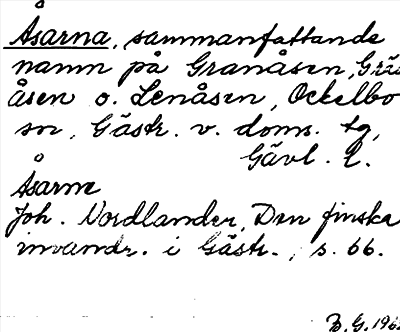 Åsarna, sammanfattande
namn på Granåsen, Grä
åsen o. Lenåsen, Ockelbo
sn, Gästr. v. doms. tg,
Gävl. l.
Åsarne
Joh. Nordlander, Den finska
invandr. i Gästr., s. 66.
B.G. 196